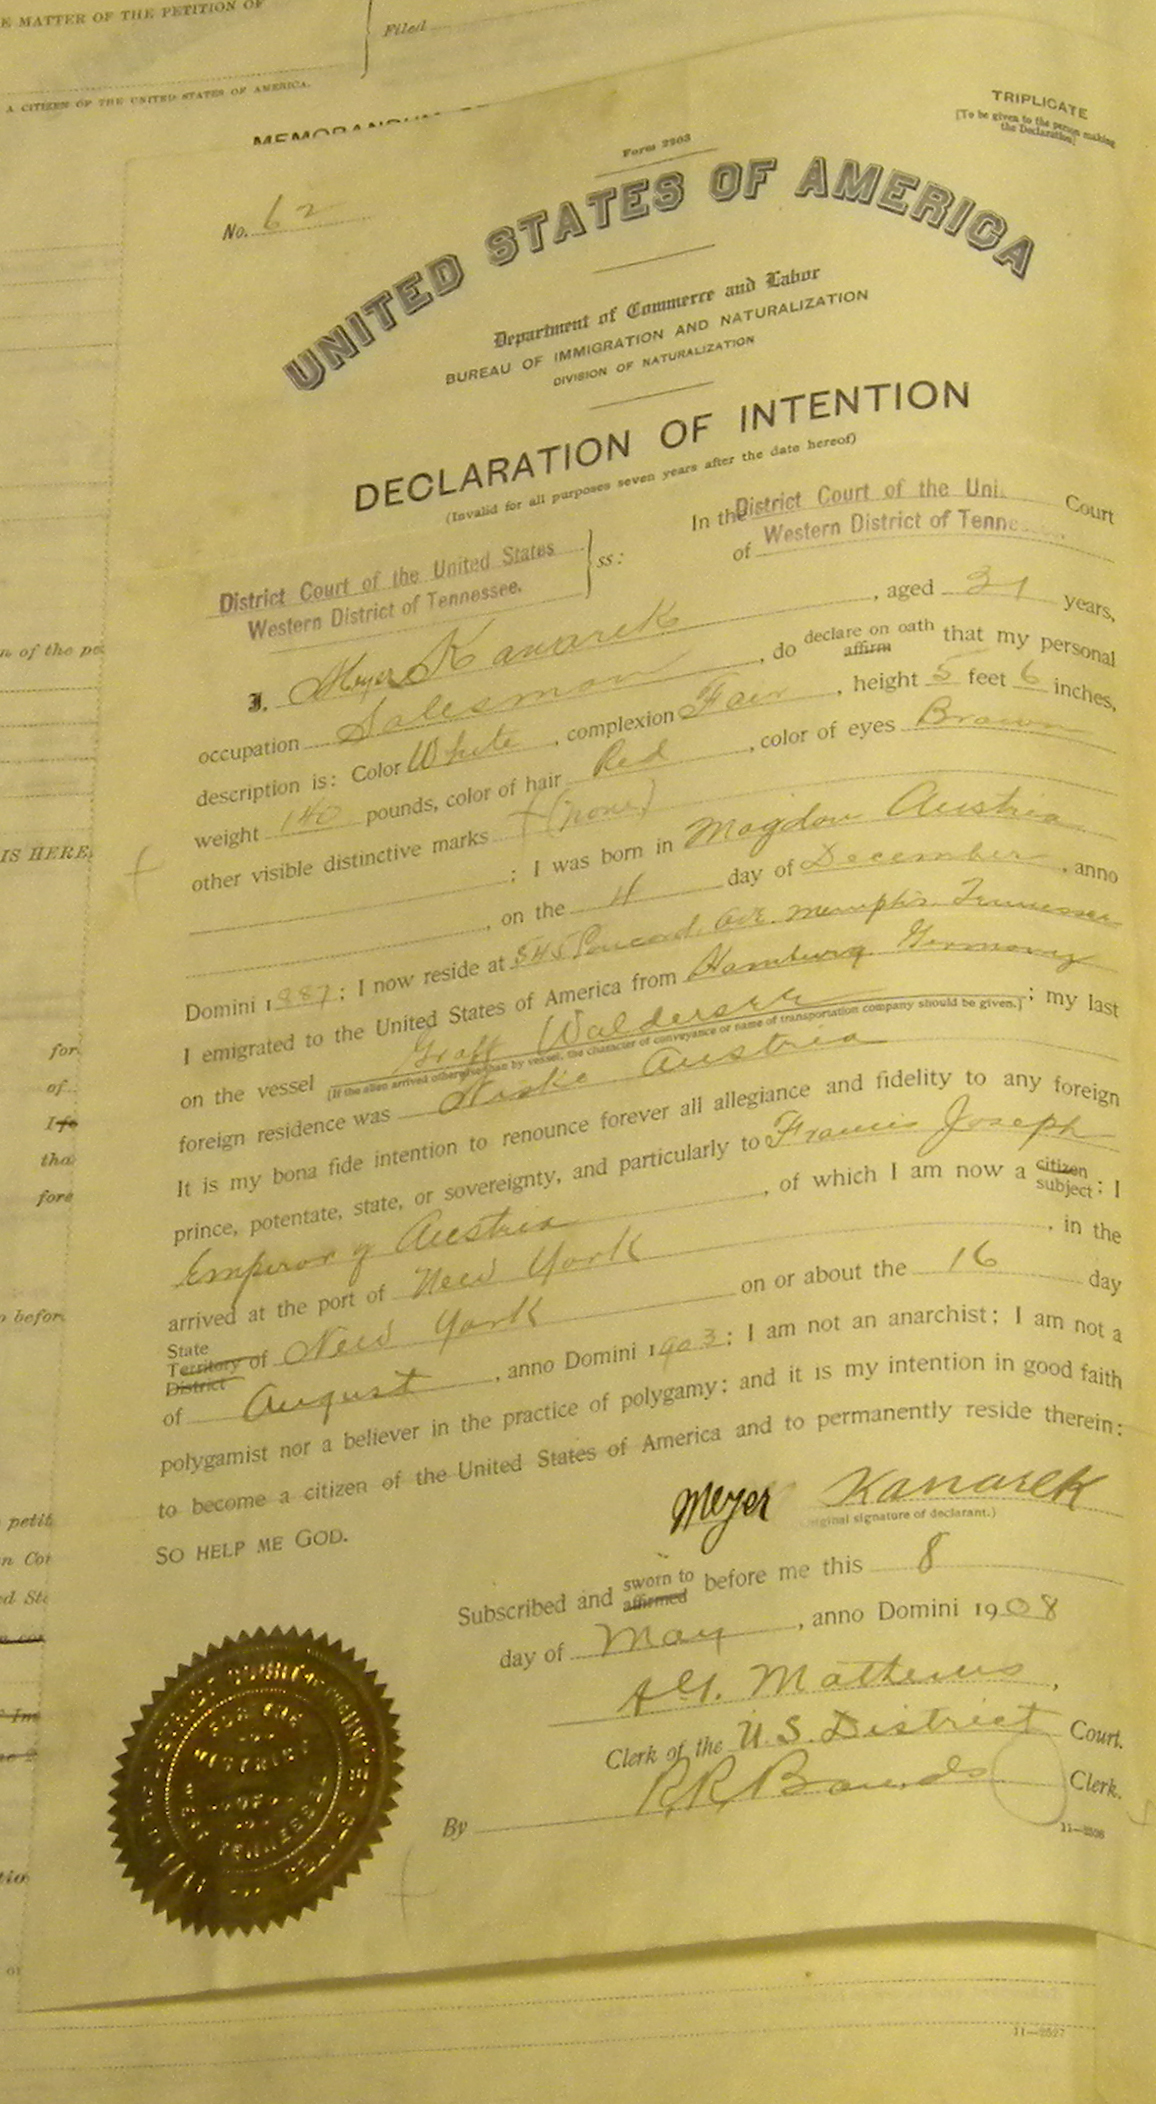 E MATTER OF THE PETITION OF
Filed
A CITIZEN OF THE UNITED STATES OF AMERICA.
TRIPLICATE
[To be given to the person making
the Declaration]
Form 2203
No. 62
UNITED STATES OF AMERICA
Department of Commerce and Labor
BUREAU OF IMMIGRATION AND NATURALIZATION
DIVISION OF NATURALIZATION
DECLARATION OF INTENTION
(Invalid for all purposes seven years after the date hereof)
In the District Court of the Uni Court
District Court of the United States
Western District of Tennessee. ss: of Western District of Tenne
I, Meyer Kanarek, aged years,
occupation Salesman, do declare on oath affirm that my personal
description is: Color White, complexion Fair, height 5 feet 6 inches,
weight 140 pounds, color of hair Red, color of eyes Brown
other visible distinctive marks (none)
; I was born in Austria
, on the 4 day of December, anno
Domini 1887; I now reside at 545 Ave. Memphis Tennessee
I emigrated to the United States of America from Hamburg Germany
on the vessel Graff Waldersee; my last
[If the alien arrived otherwise than by vessel, the character of conveyance or name of transportation company should be given.]
foreign residence was Austria
It is my bona fide intention to renounce forever all allegiance and fidelity to any foreign
prince, potentate, state, or sovereignty, and particularly to Francis Joseph
Emperor of Austria, of which I am now a citizen subject; I
arrived at the port of New York, in the
State Territory District of New York on or about the 16 day
of August, anno Domini 1903; I am not an anarchist; I am not a
polygamist nor a believer in the practice of polygamy; and it is my intention in good faith
to become a citizen of the United States of America and to permanently reside therein:
SO HELP ME GOD.
Meyer Kanarek
(Original signature of declarant.)
Subscribed and sworn to affirmed before me this 8
day of May, anno Domini 1908
Mathews,
Clerk of the U.S. District Court.
By R.R. Clerk.
11—2527